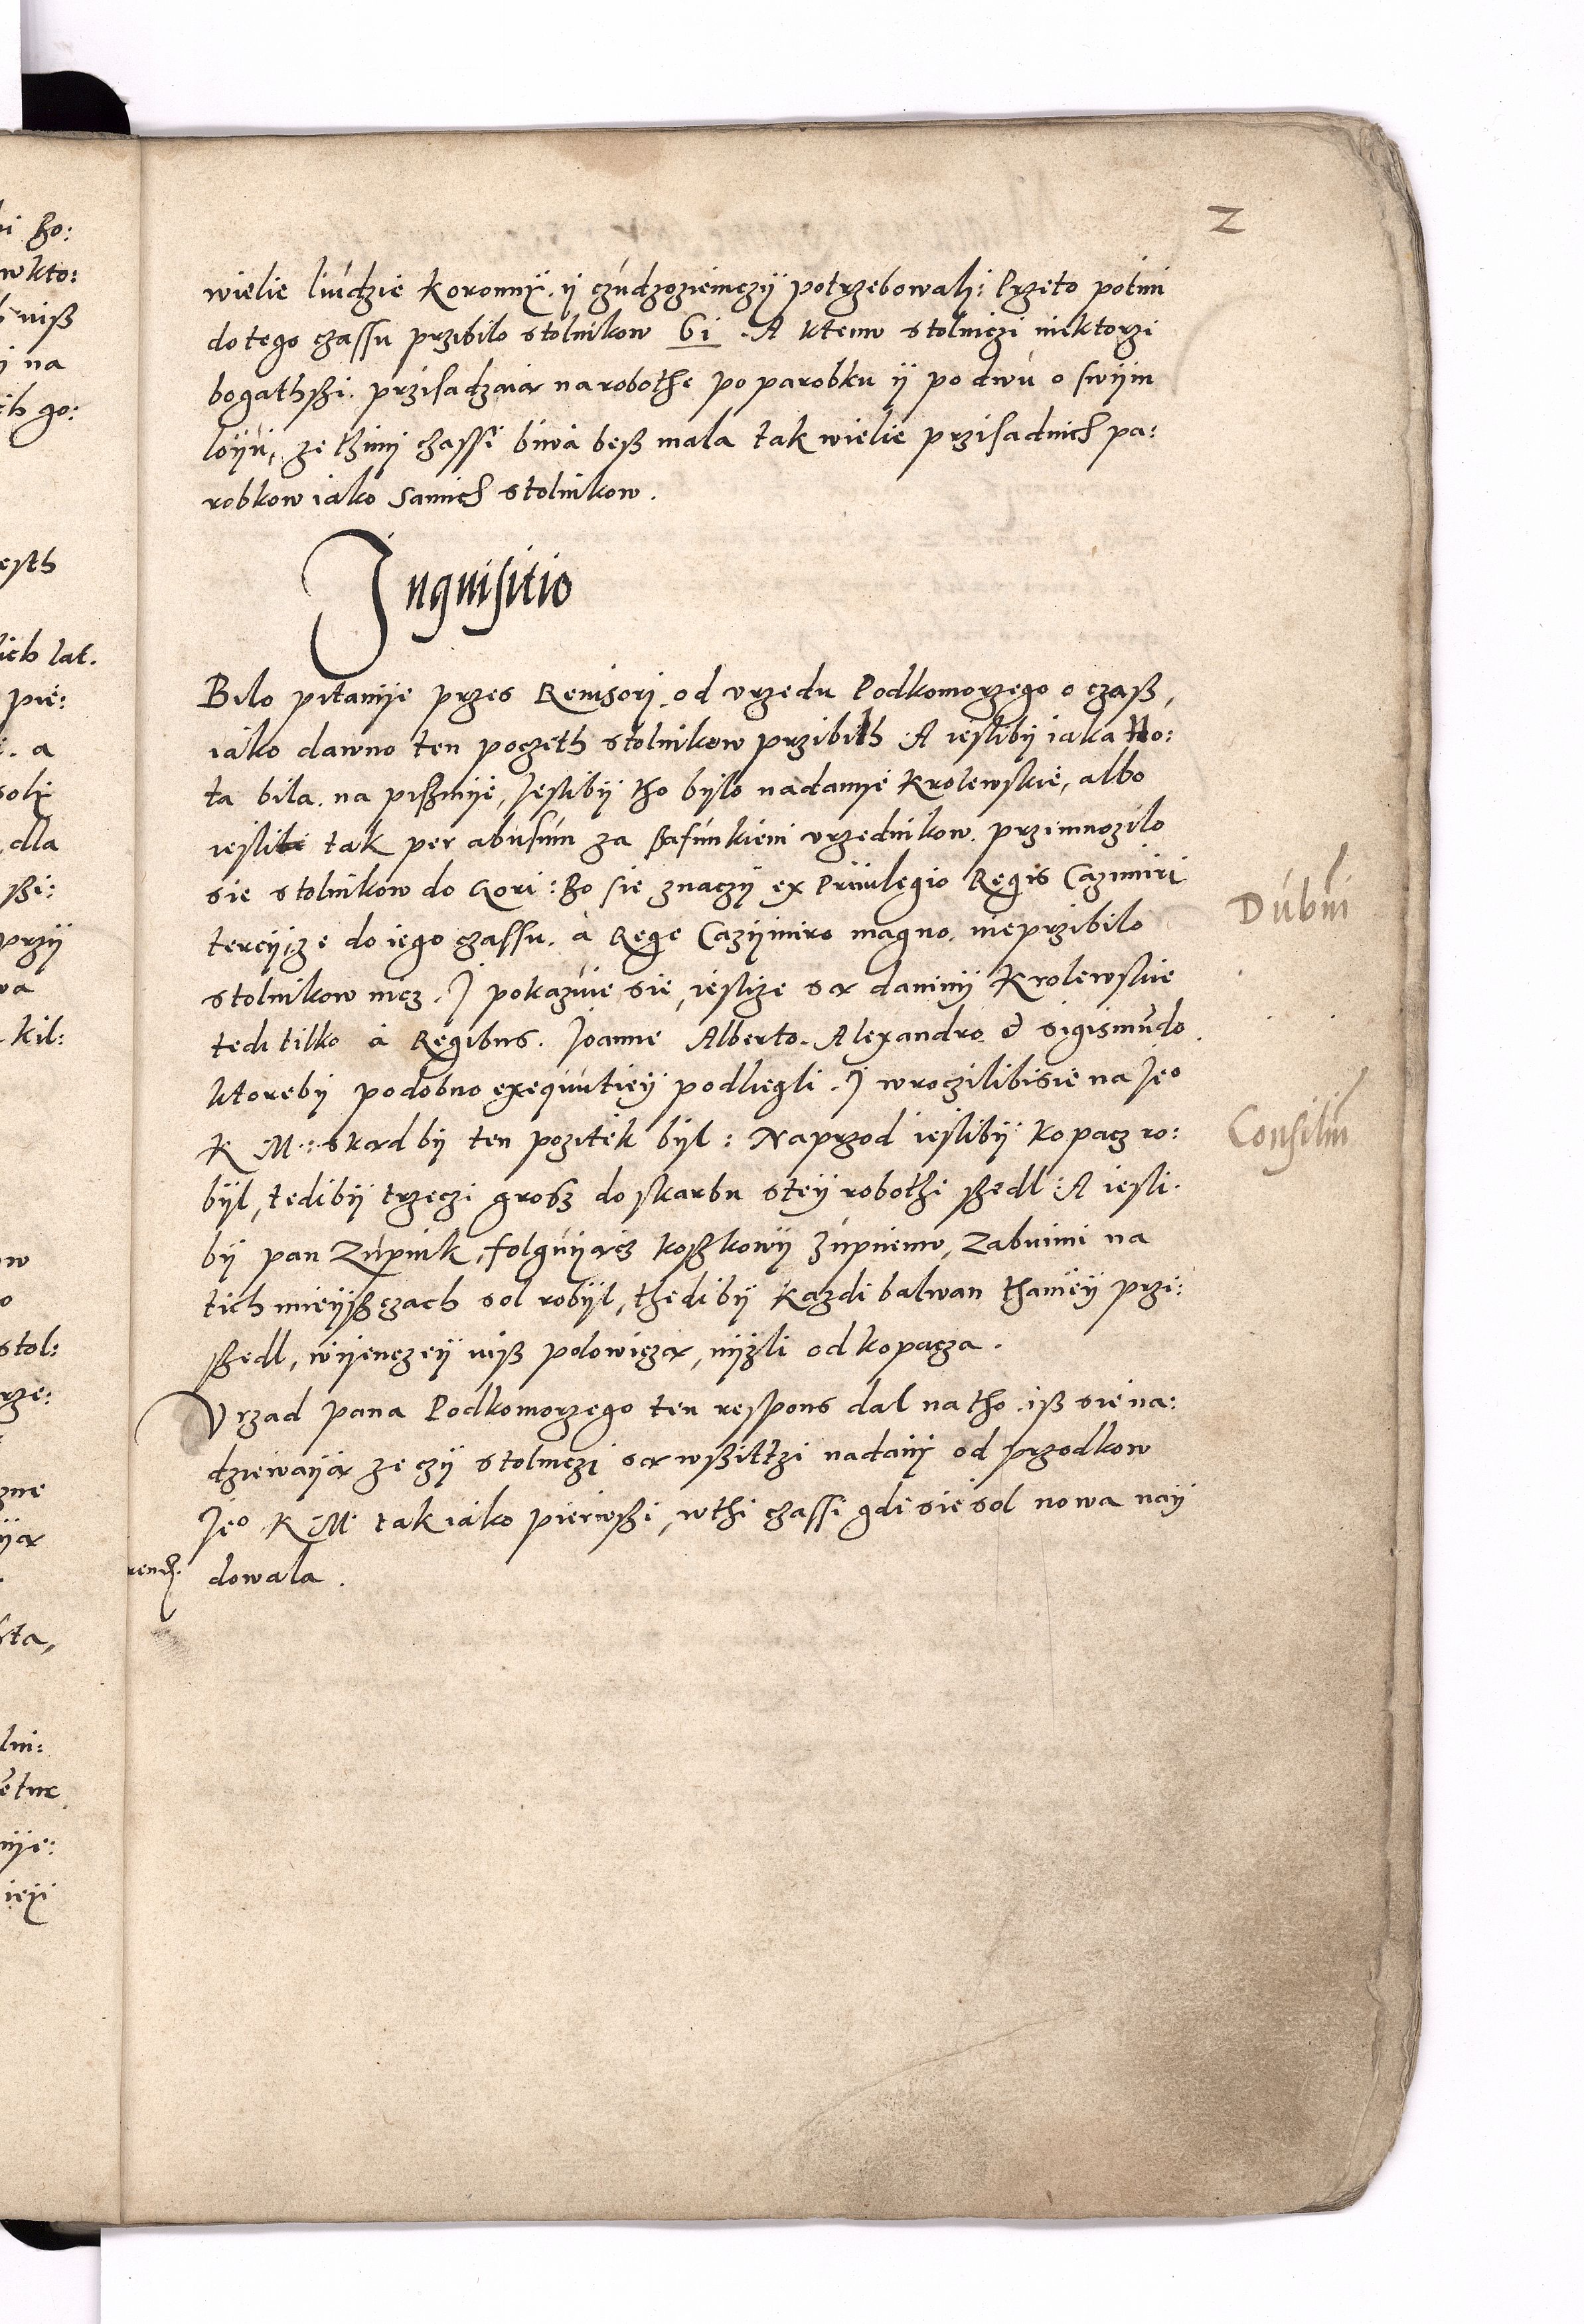 2
wielie liudzie koronny. ij czudzoziemczÿ potrzebowalj: Przeto potim
do tego czassu przibilo stolnikow 61. A ktemu stolniczi niektorzi
bogathßi. przisadzaią na robothę po parobku ÿ po dwu o swÿm
loÿu, ze thimj czassÿ biwa beß mala tak wielie przisadnich pa:
robkow iako samich stolnikow.
Inquisitio
Bilo pitanije przes Reuisorj. od vrzedu Podkomorzego o czaß,
iako dawno ten poczeth stolnikow przibilh A iesliby iaka No:
ta bila. na pißmije, Jesliby tho bylo nadanye krolewskie, albo
iesli tak per abusum za ßafunkiem vrzednikow. przimnozilo
sie stolnikow do Gori: Bo sie znaczÿ ex Priuilegio Regis Cazimiri
tercij, ze do iego czassu. à Rege Cazijmiro magno. nieprzibilo
stolnikow nicz. J pokazuie sie, iesliże są daninÿ krolewskie
tedi tilko à Regibus. Joanne Alberto. Alexandro & sigismudo.
ktoreby podobno exequutieÿ podliegli. J wroczilibisie na Jeo
K M: skąd by ten pozitek bÿl: Naprzod iesliby kopacz ro:
byl, tediby trzeczi grosz do skarbu stey robothi ßedl: A iesli.
by pan Zupnik, folguÿącz koßkowÿ zupnemu, Zabnimi na
tich mieÿßczach sol robÿl, thediby kazdi balwan thanieÿ prze:
ßedl, wÿenczeÿ niß polowiczą, nÿżli od kopacza.
Vrzad pana Podkomorzego ten respons dal na tho. iß sie na:
dziewaÿą ze czÿ stolniczi są wßittzi nadanÿ od przodkow
Jeo K M. tak iako pierwßi, w thi czassi gdi sie sol nowa naÿ
dowala.
Dubiu
Consiliu